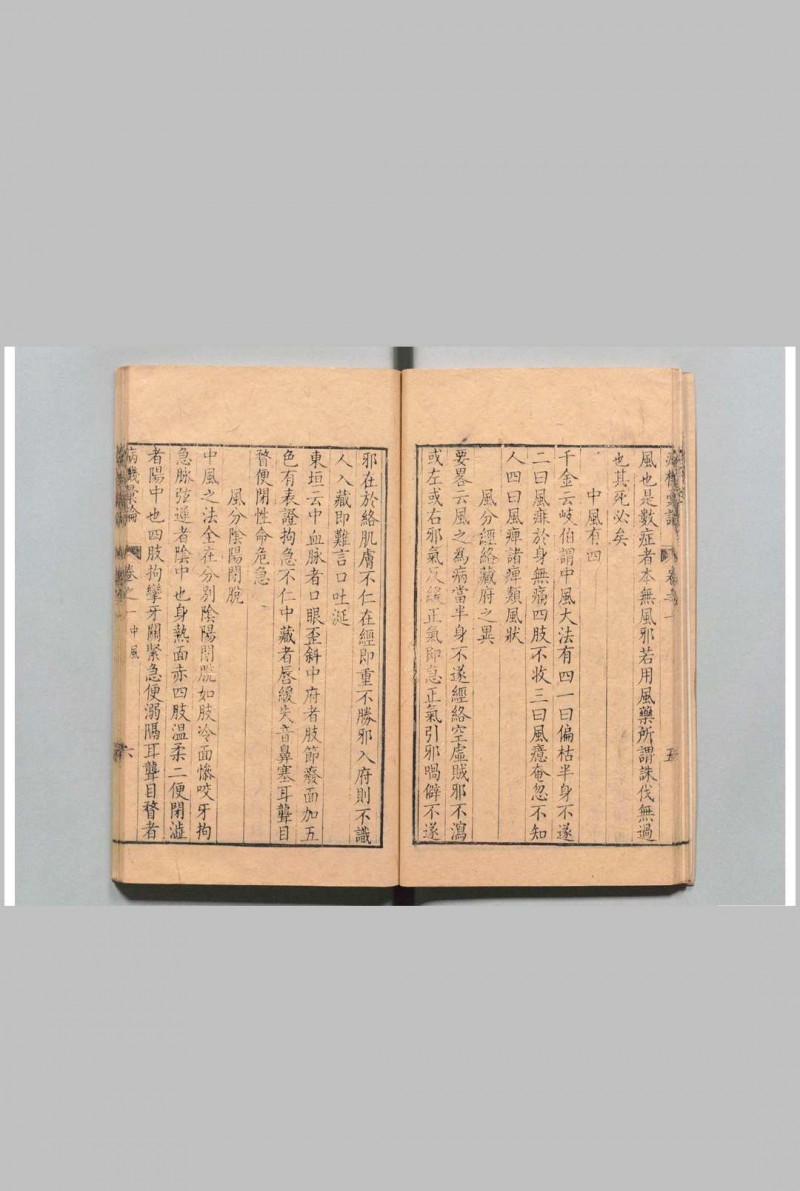 風也是數症者本無風邪若用風藥所謂誅伐無過
也其死必矣
中風有四
千金云岐伯謂中風大法有四一曰偏枯半身不遂
二曰風痱於身無痛四肢不收三曰風癔奄忽不知
人四曰風痺諸痺類風狀
風分經絡藏府之異
要畧云風之為病當半身不遂經絡空虛賊邪不瀉
或左或右邪氣反緩正氣即急正氣引邪喎僻不遂
邪在於絡肌膚不仁在經即重不勝邪入府則不識
人入藏即難言口吐涎
東垣云中血脉者口眼歪斜中府者肢節廢面加五
色有表證拘急不仁中藏者唇緩失音鼻塞耳聾目
瞀便閉性命危急
風分陰陽閉脫
中風之法全在分別陰陽閉脫如肢冷面慘咬牙拘
急脉弦遲者陰中也身熱面赤四肢溫柔二便閉澁
者陽中也四肢拘攣牙關緊急便溺隔耳聾目瞀者
病機彙論 卷之一 中風 六